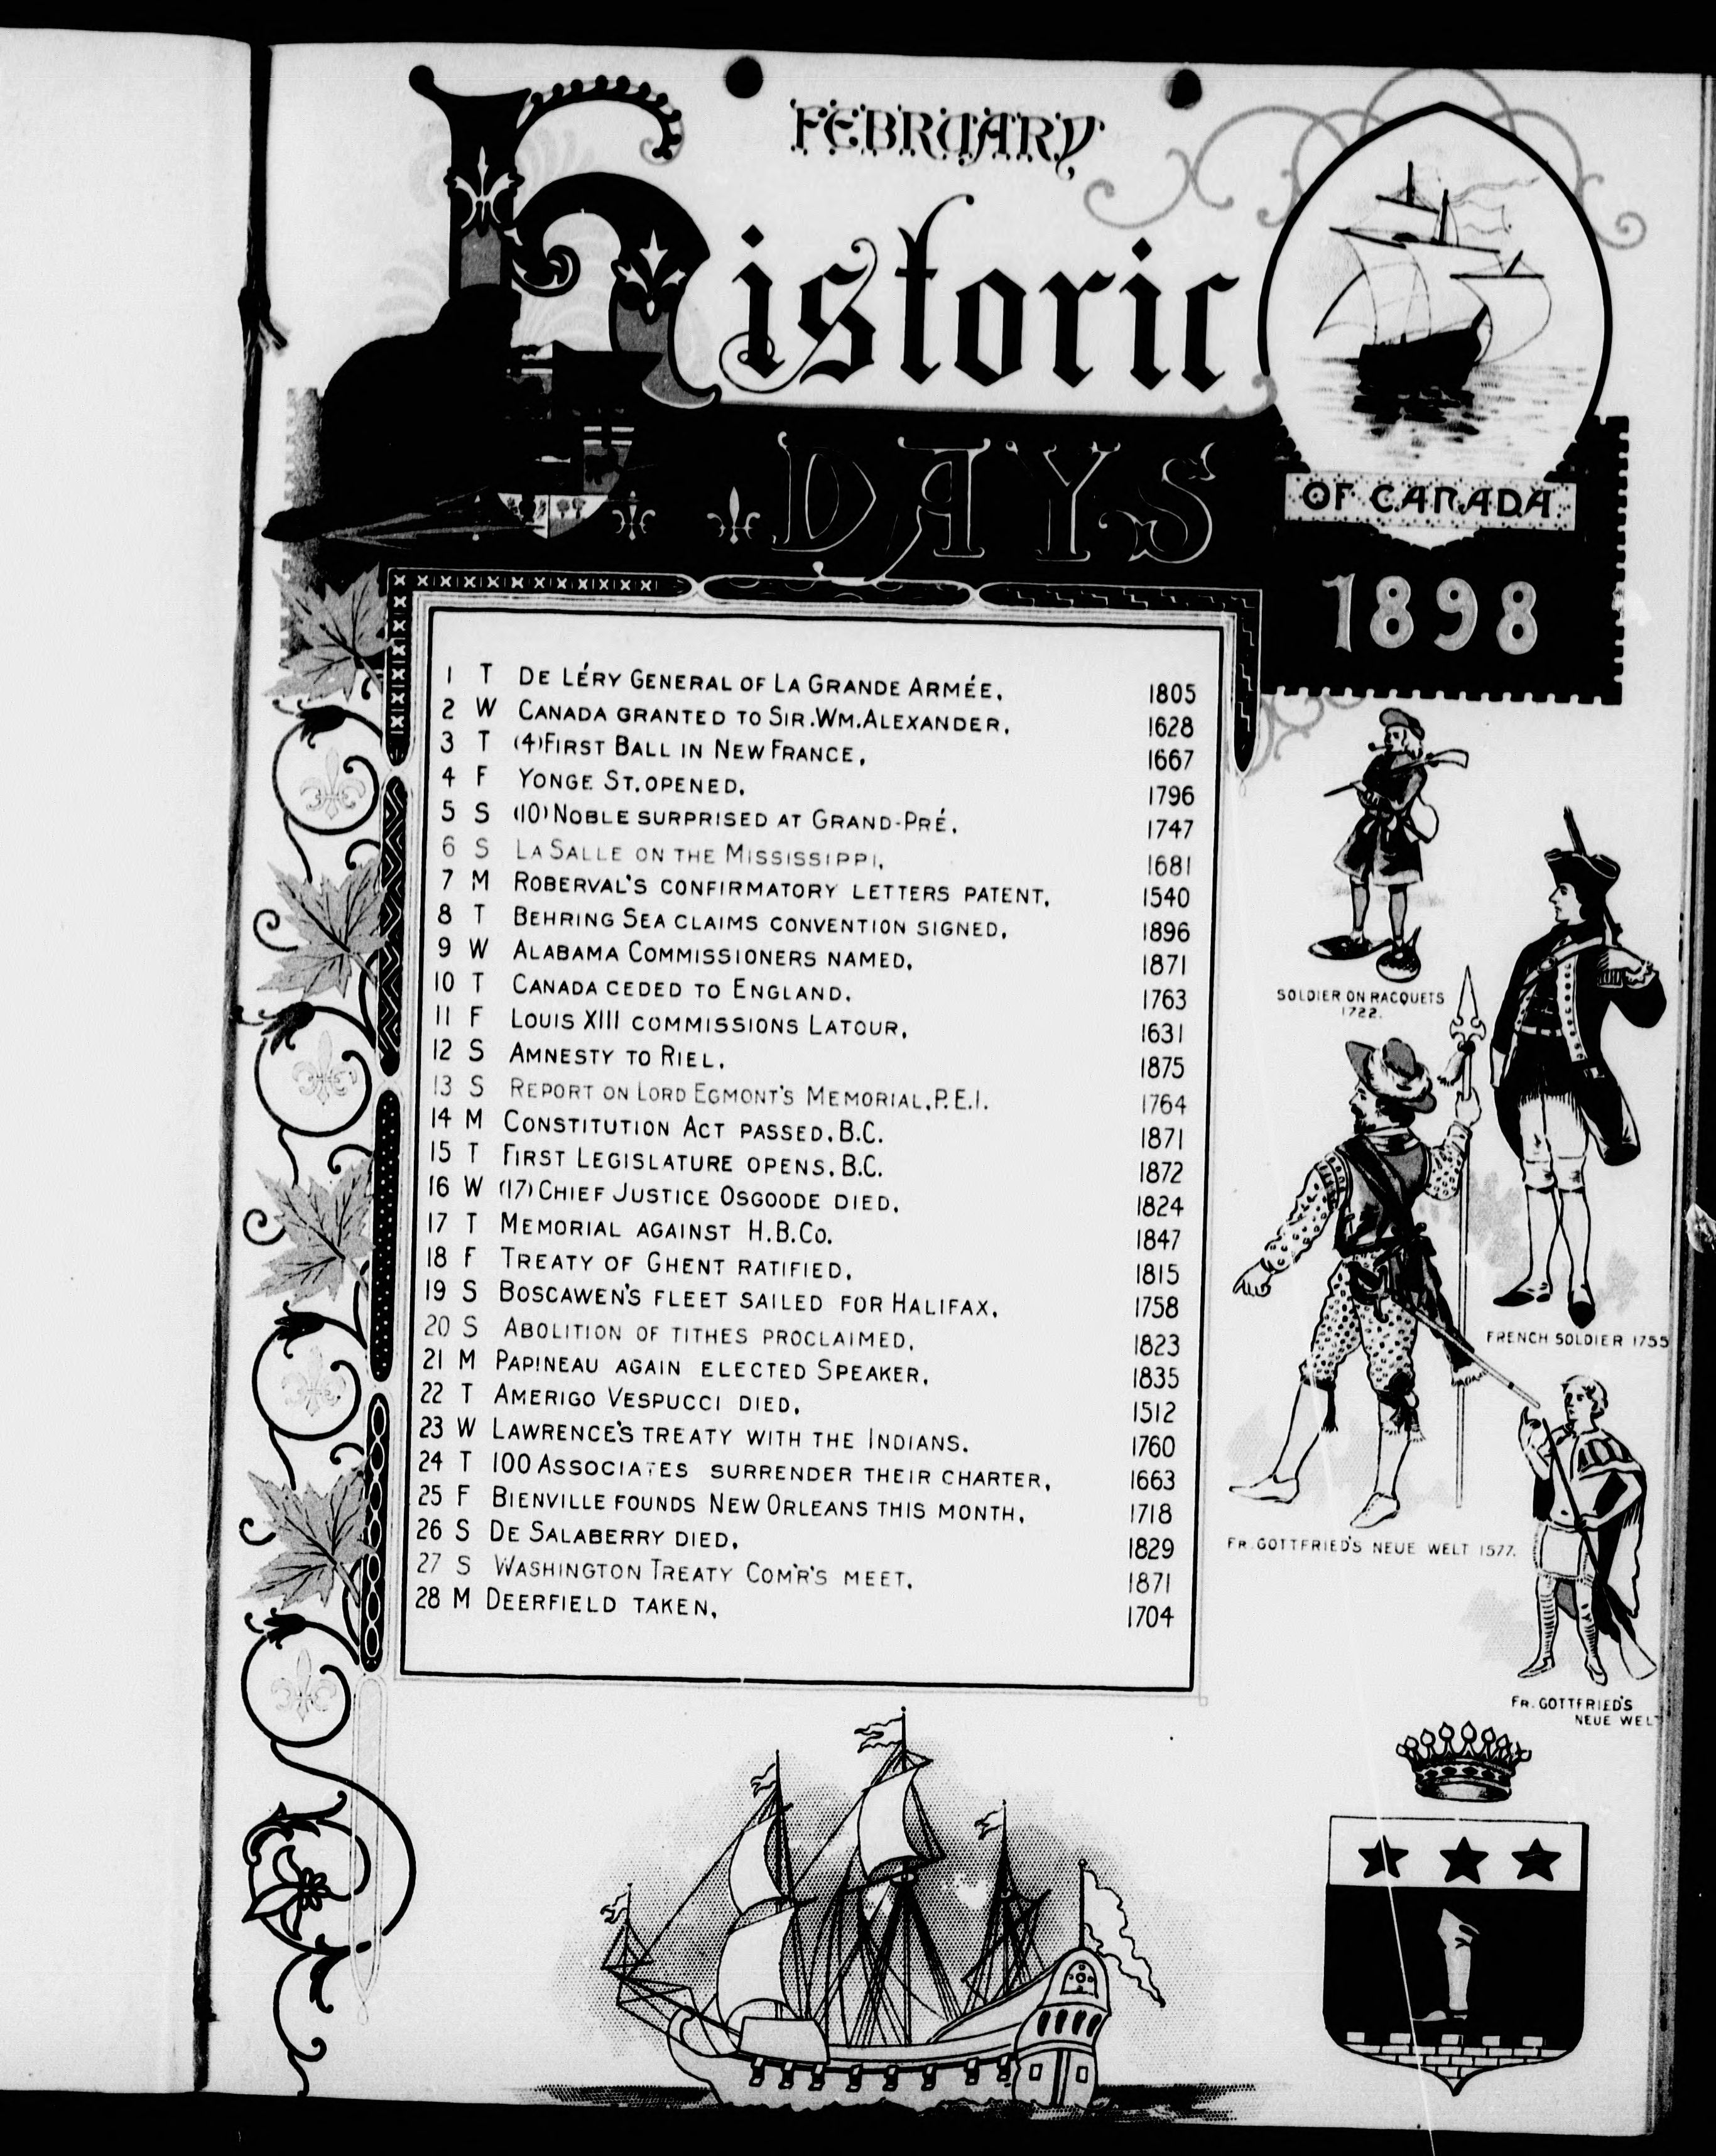 FEBRUARY
Historic
DAYS
OF CANADA
1898
1 T DE LÉRY GENERAL OF LA GRANDE ARMÉE. 1805
2 W CANADA GRANTED TO SIR.WM.ALEXANDER. 1628
3 T (4)FIRST BALL IN NEW FRANCE. 1667
4 F YONGE ST. OPENED. 1796
5 S (10) NOBLE SURPRISED AT GRAND-PRÉ. 1747
6 S LA SALLE ON THE MISSISSIPPI. 1681
7 M ROBERVAL'S CONFIRMATORY LETTERS PATENT. 1540
8 T BEHRING SEA CLAIMS CONVENTION SIGNED. 1896
9 W ALABAMA COMMISSIONERS NAMED. 1871
10 T CANADA CEDED TO ENGLAND. 1763
11 F LOUIS XIII COMMISSIONS LATOUR. 1631
12 S AMNESTY TO RIEL. 1875
13 S REPORT ON LORD EGMONT'S MEMORIAL, P.E.I. 1764
14 M CONSTITUTION ACT PASSED. B.C. 1871
15 T FIRST LEGISLATURE OPENS. B.C. 1872
16 W (17) CHIEF JUSTICE OSGOODE DIED. 1824
17 T MEMORIAL AGAINST H.B.CO. 1847
18 F TREATY OF GHENT RATIFIED. 1815
19 S BOSCAWEN'S FLEET SAILED FOR HALIFAX. 1758
20 S ABOLITION OF TITHES PROCLAIMED. 1823
21 M PAPINEAU AGAIN ELECTED SPEAKER. 1835
22 T AMERIGO VESPUCCI DIED. 1512
23 W LAWRENCE'S TREATY WITH THE INDIANS. 1760
24 T 100 ASSOCIATES SURRENDER THEIR CHARTER. 1663
25 F BIENVILLE FOUNDS NEW ORLEANS THIS MONTH. 1718
26 S DE SALABERRY DIED. 1829
27 S WASHINGTON TREATY COM'R'S MEET. 1871
28 M DEERFIELD TAKEN. 1704
SOLDIER ON RACQUETS
1722.
FRENCH SOLDIER 1755
FR. GOTTFRIED'S NEUE WELT 1577.
FR. GOTTFRIED'S
NEUE WELT